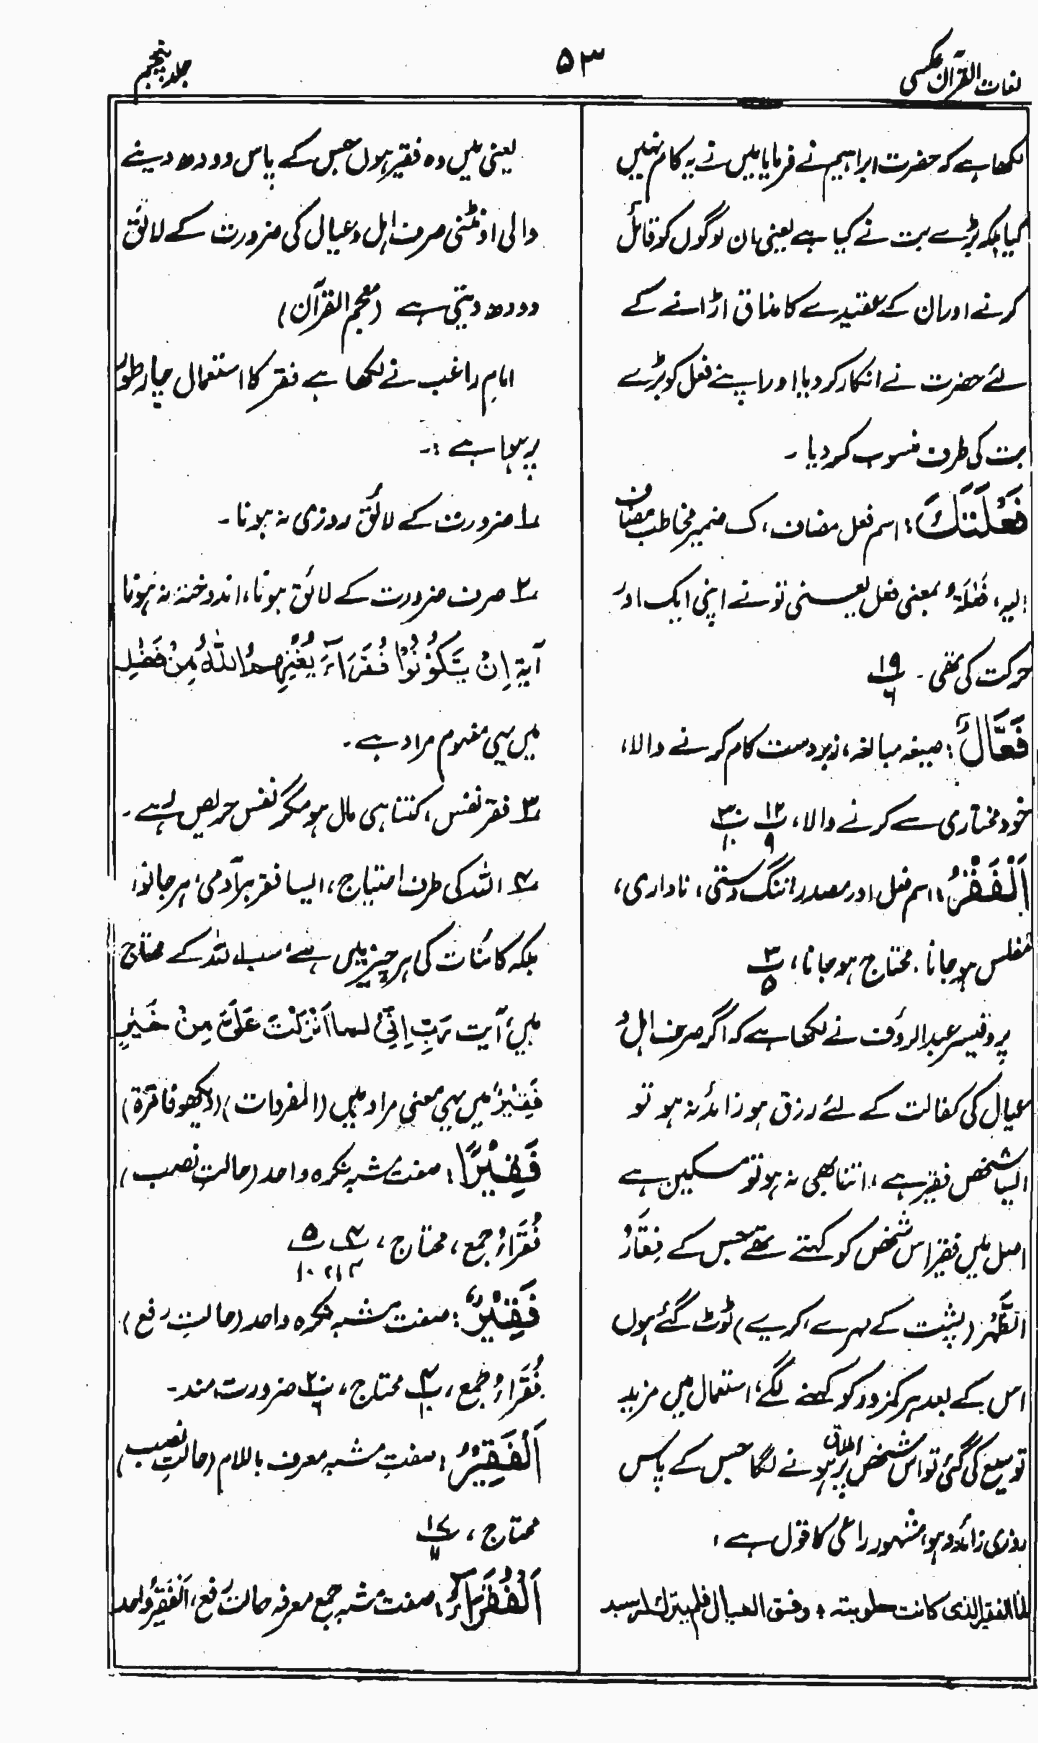 لغات القرآن عکسی
۵۳
جلد پنجم
لکھا ہے کہ حضرت ابراہیم نے فرمایا میں نے یہ کام نہیں
کیا بلکہ بڑے بت نے کیا ہے یعنی ان لوگوں کو قائل
کرنے اور ان کے عقیدے کا مذاق اڑانے کے
لئے حضرت نے انکار کر دیا اور اپنے فعل کو بڑے
بت کی طرف منسوب کر دیا ۔
فَعْلَتَكَ: اسم فعل مضاف، ک ضمیر مخاطب مضاف
الیہ، فَعْلَۃٌ بمعنی فعل یعنی تو نے اپنی ایک اور
حرکت کی تھی ۔ ۱۹/۶
فَعَّالٌ: صیغہ مبالغہ، زبردست کام کرنے والا،
خود مختاری سے کرنے والا، ۱۲/۹ ۳۰/۱۰
اَلْفَقْرُ: اسم فعل اور مصدر، تنگ دستی، ناداری،
مفلس ہو جانا، محتاج ہو جانا، ۳/۵
پروفیسر عبد الرؤف نے لکھا ہے کہ اگر صرف اہل و
عیال کی کفالت کے لئے رزق ہو زائد نہ ہو تو
ایسا شخص فقیر ہے، اتنا بھی نہ ہو تو مسکین ہے
اصل میں فقیر اس شخص کو کہتے تھے جس کے فِقَارُ
الظَّہر (پشت کے مہرے، کریے) ٹوٹ گئے ہوں
اس کے بعد ہر کمزور کو کہنے لگے، استعمال میں مزید
توسیع کی گئی تو اس شخص پر اطلاق ہونے لگا جس کے پاس
روزی زائد نہ ہو، مشہور راعی کا قول ہے،
اما الفقیر الذی کانت حلوبتہ ؛ وفق العیال فلم یترک لہ سبد
یعنی میں وہ فقیر ہوں جس کے پاس دودھ دینے
والی اونٹنی صرف اہل و عیال کی ضرورت کے لائق
دودھ دیتی ہے (معجم القرآن)
امام راغب نے لکھا ہے فقر کا استعمال چار طور
پر ہوا ہے :۔
۱ ضرورت کے لائق روزی نہ ہونا ۔
۲ صرف ضرورت کے لائق ہونا، اندوختہ نہ ہونا
آیۃ اِنْ یَّکُوْنُوْا فُقَرَاءَ یُغْنِہِمُ اللّٰہُ مِنْ فَضْلِہٖ
میں یہی مفہوم مراد ہے ۔
۳ فقر نفس، کتنا ہی مال ہو مگر نفس حریص رہے ۔
۴ اللہ کی طرف احتیاج، ایسا فقر ہر آدمی، ہر جانور،
بلکہ کائنات کی ہر چیز میں ہے، سب اللہ کے محتاج
ہیں، آیت رَبِّ اِنِّیْ لِمَا اَنْزَلْتَ عَلَیَّ مِنْ خَیْرٍ
فَقِیْرٌ میں یہی معنی مراد ہیں (المفردات) (دیکھو فاقرۃ)
فَقِیْرًا: صفت مشبہ نکرہ واحد (حالت نصب)
فُقَرَاءُ جمع، محتاج، ۴ ۵/۱۰
فَقِیْرٌ: صفت مشبہ نکرہ واحد (حالتِ رفع)
فُقَرَاءُ جمع، ۳/۱ محتاج، ۲۰/۶ ضرورت مند۔
اَلْفَقِیْرُ: صفتِ مشبہ معرف باللام (حالتِ نصب)
محتاج، ۱۷/۱۱
اَلْفُقَرَاءُ: صفت مشبہ جمع معرفہ حالت رفع، اَلْفَقِیْرُ واحد